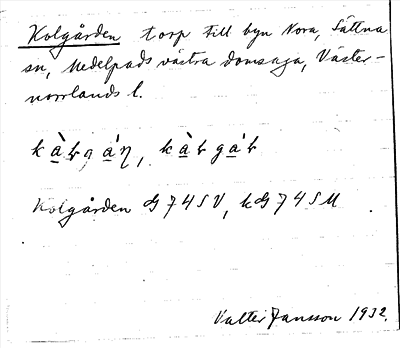 Kolgården torp till byn Nora, Sättna
sn, Medelpads västra domsaga, Väster-
norrlands l.
Kolgården G74SV, kG74SM
Valter Jansson 1932.